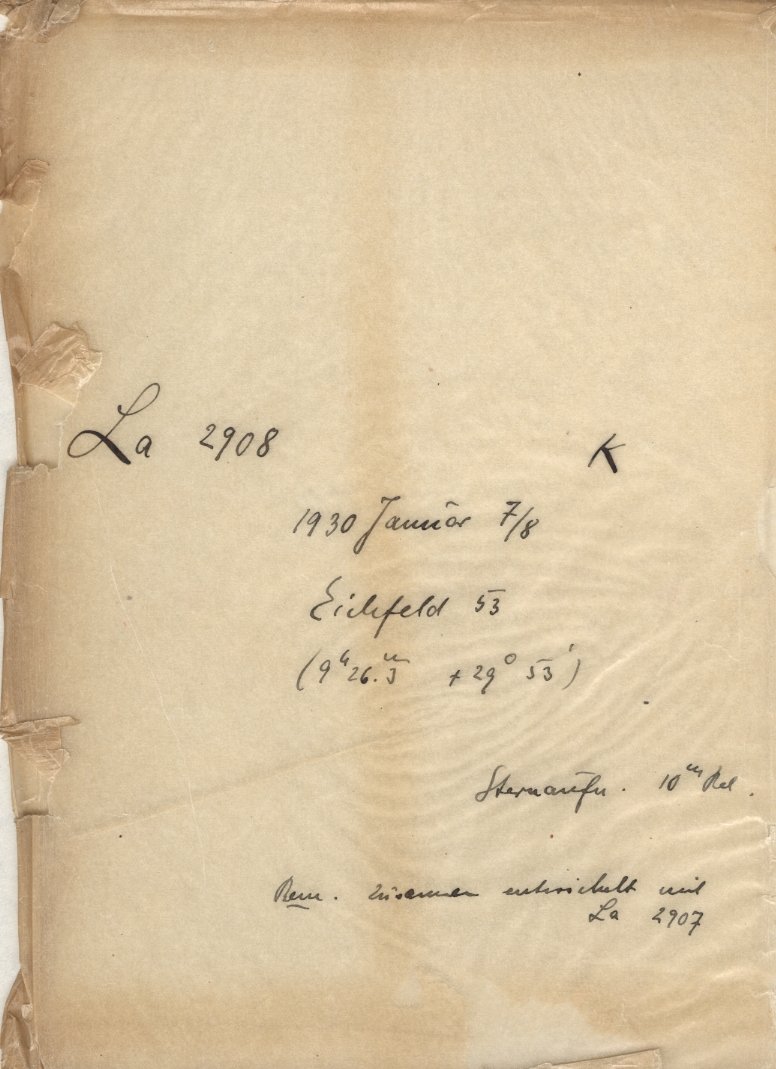 La 2908 K
1930 Januar 7/8
Eichfeld 53
(9ʰ 26.ᵐ3 + 29° 53')
Sternaufn. 10ᵐ Bel.
Bem. zusammen entwickelt mit
La 2907